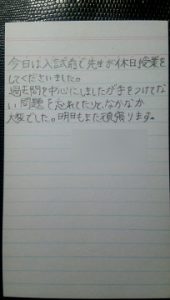 今日は入試前で先生が休日授業を
してくださいました。
過去問を中心にしましたが手をつけてな
い問題を忘れてたりと、なかなか
大変でした。明日もまた頑張ります。